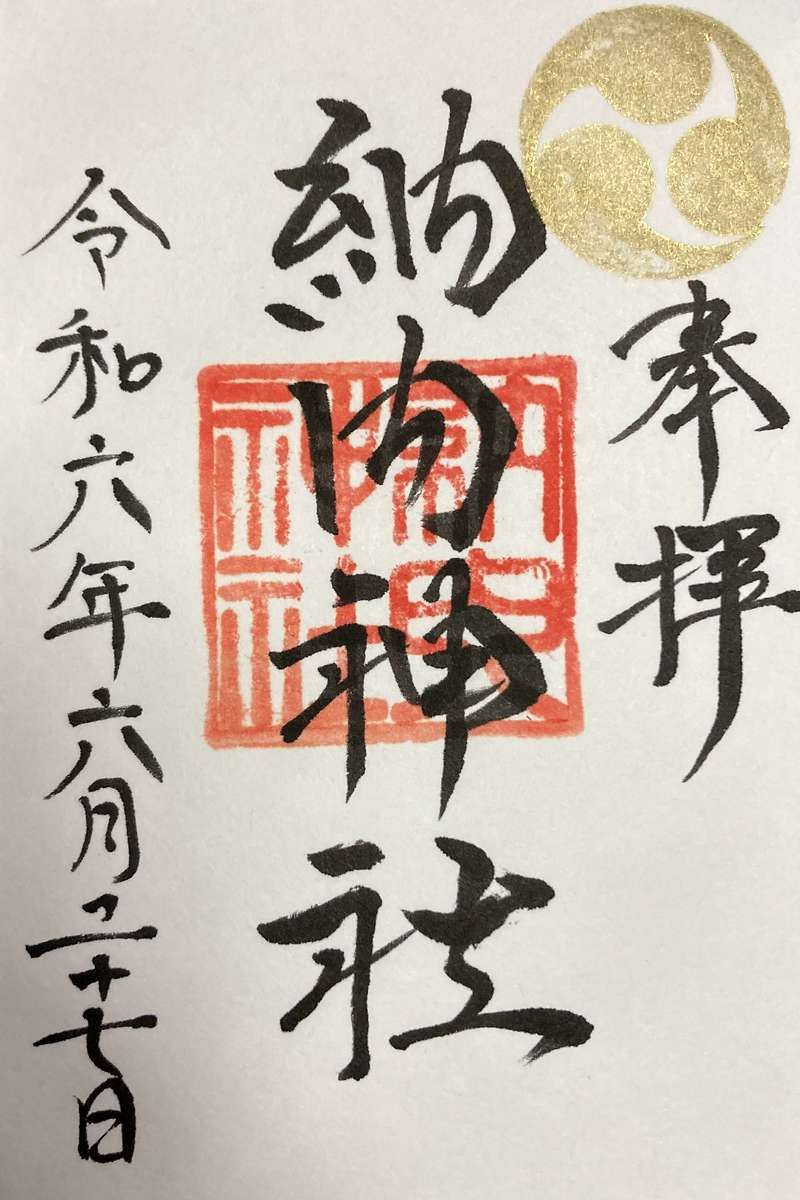 奉拝
納内神社
令和六年六月二十七日